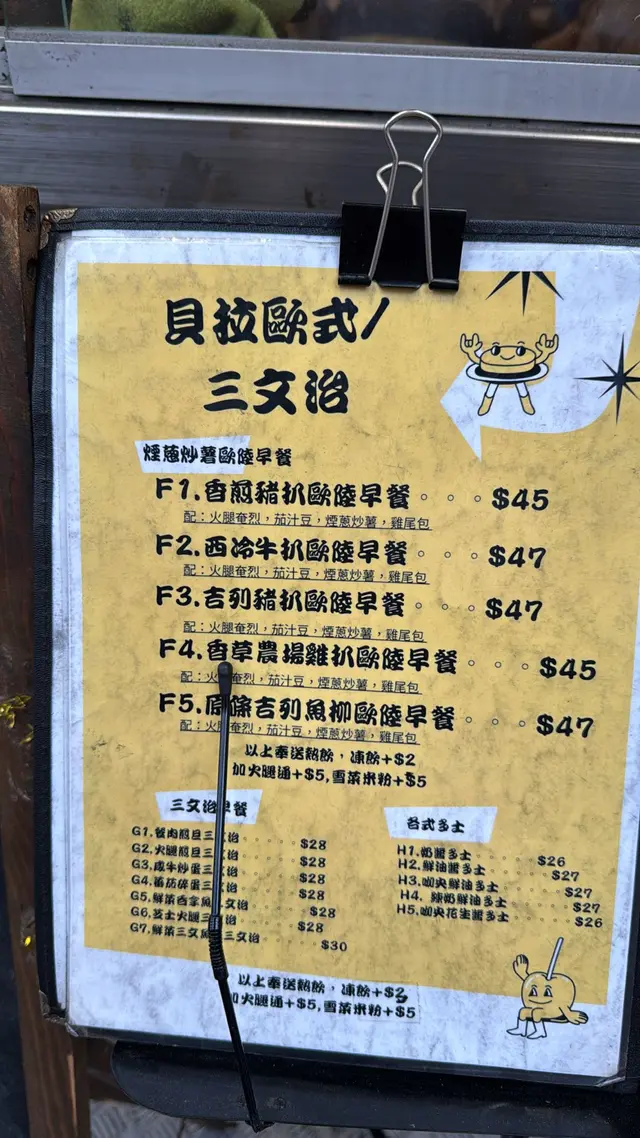 貝拉歐式/
三文治
煙蔥炒薯歐陸早餐
F1.香煎豬扒歐陸早餐。。。$45
配：火腿奄烈，茄汁豆，煙蔥炒薯，雞尾包
F2.西冷牛扒歐陸早餐。。。$47
配：火腿奄烈，茄汁豆，煙蔥炒薯，雞尾包
F3.吉列豬扒歐陸早餐。。。$47
配：火腿奄烈，茄汁豆，煙蔥炒薯，雞尾包
F4.香草農場雞扒歐陸早餐。。。$45
配：火奄烈，茄汁豆，煙蔥炒薯，雞尾包
F5.原條吉列魚柳歐陸早餐。。。$47
配：火奄烈，茄汁豆，煙蔥炒薯，雞尾包
以上奉送熱飲，凍飲+$2
加火腿通+$5,雪菜米粉+$5
三文治早餐
G1.餐肉煎旦三治 $28
G2.火腿煎旦三治 $28
G3.咸牛炒蛋三治 $28
G4.蕃茄碎蛋三治 $28
G5.鮮菜吞拿魚文治 $28
G6.芝士火腿三治 $28
G7.鮮菜三文魚三文治 $30
各式多士
H1.奶醬多士 $26
H2.鮮油醬多士 $27
H3.咖央鮮油多士 $27
H4. 煉奶鮮油多士 $27
H5.咖央花生醬多士 $26
以上奉送熱飲，凍飲+$2
火腿通+$5,雪菜米粉+$5